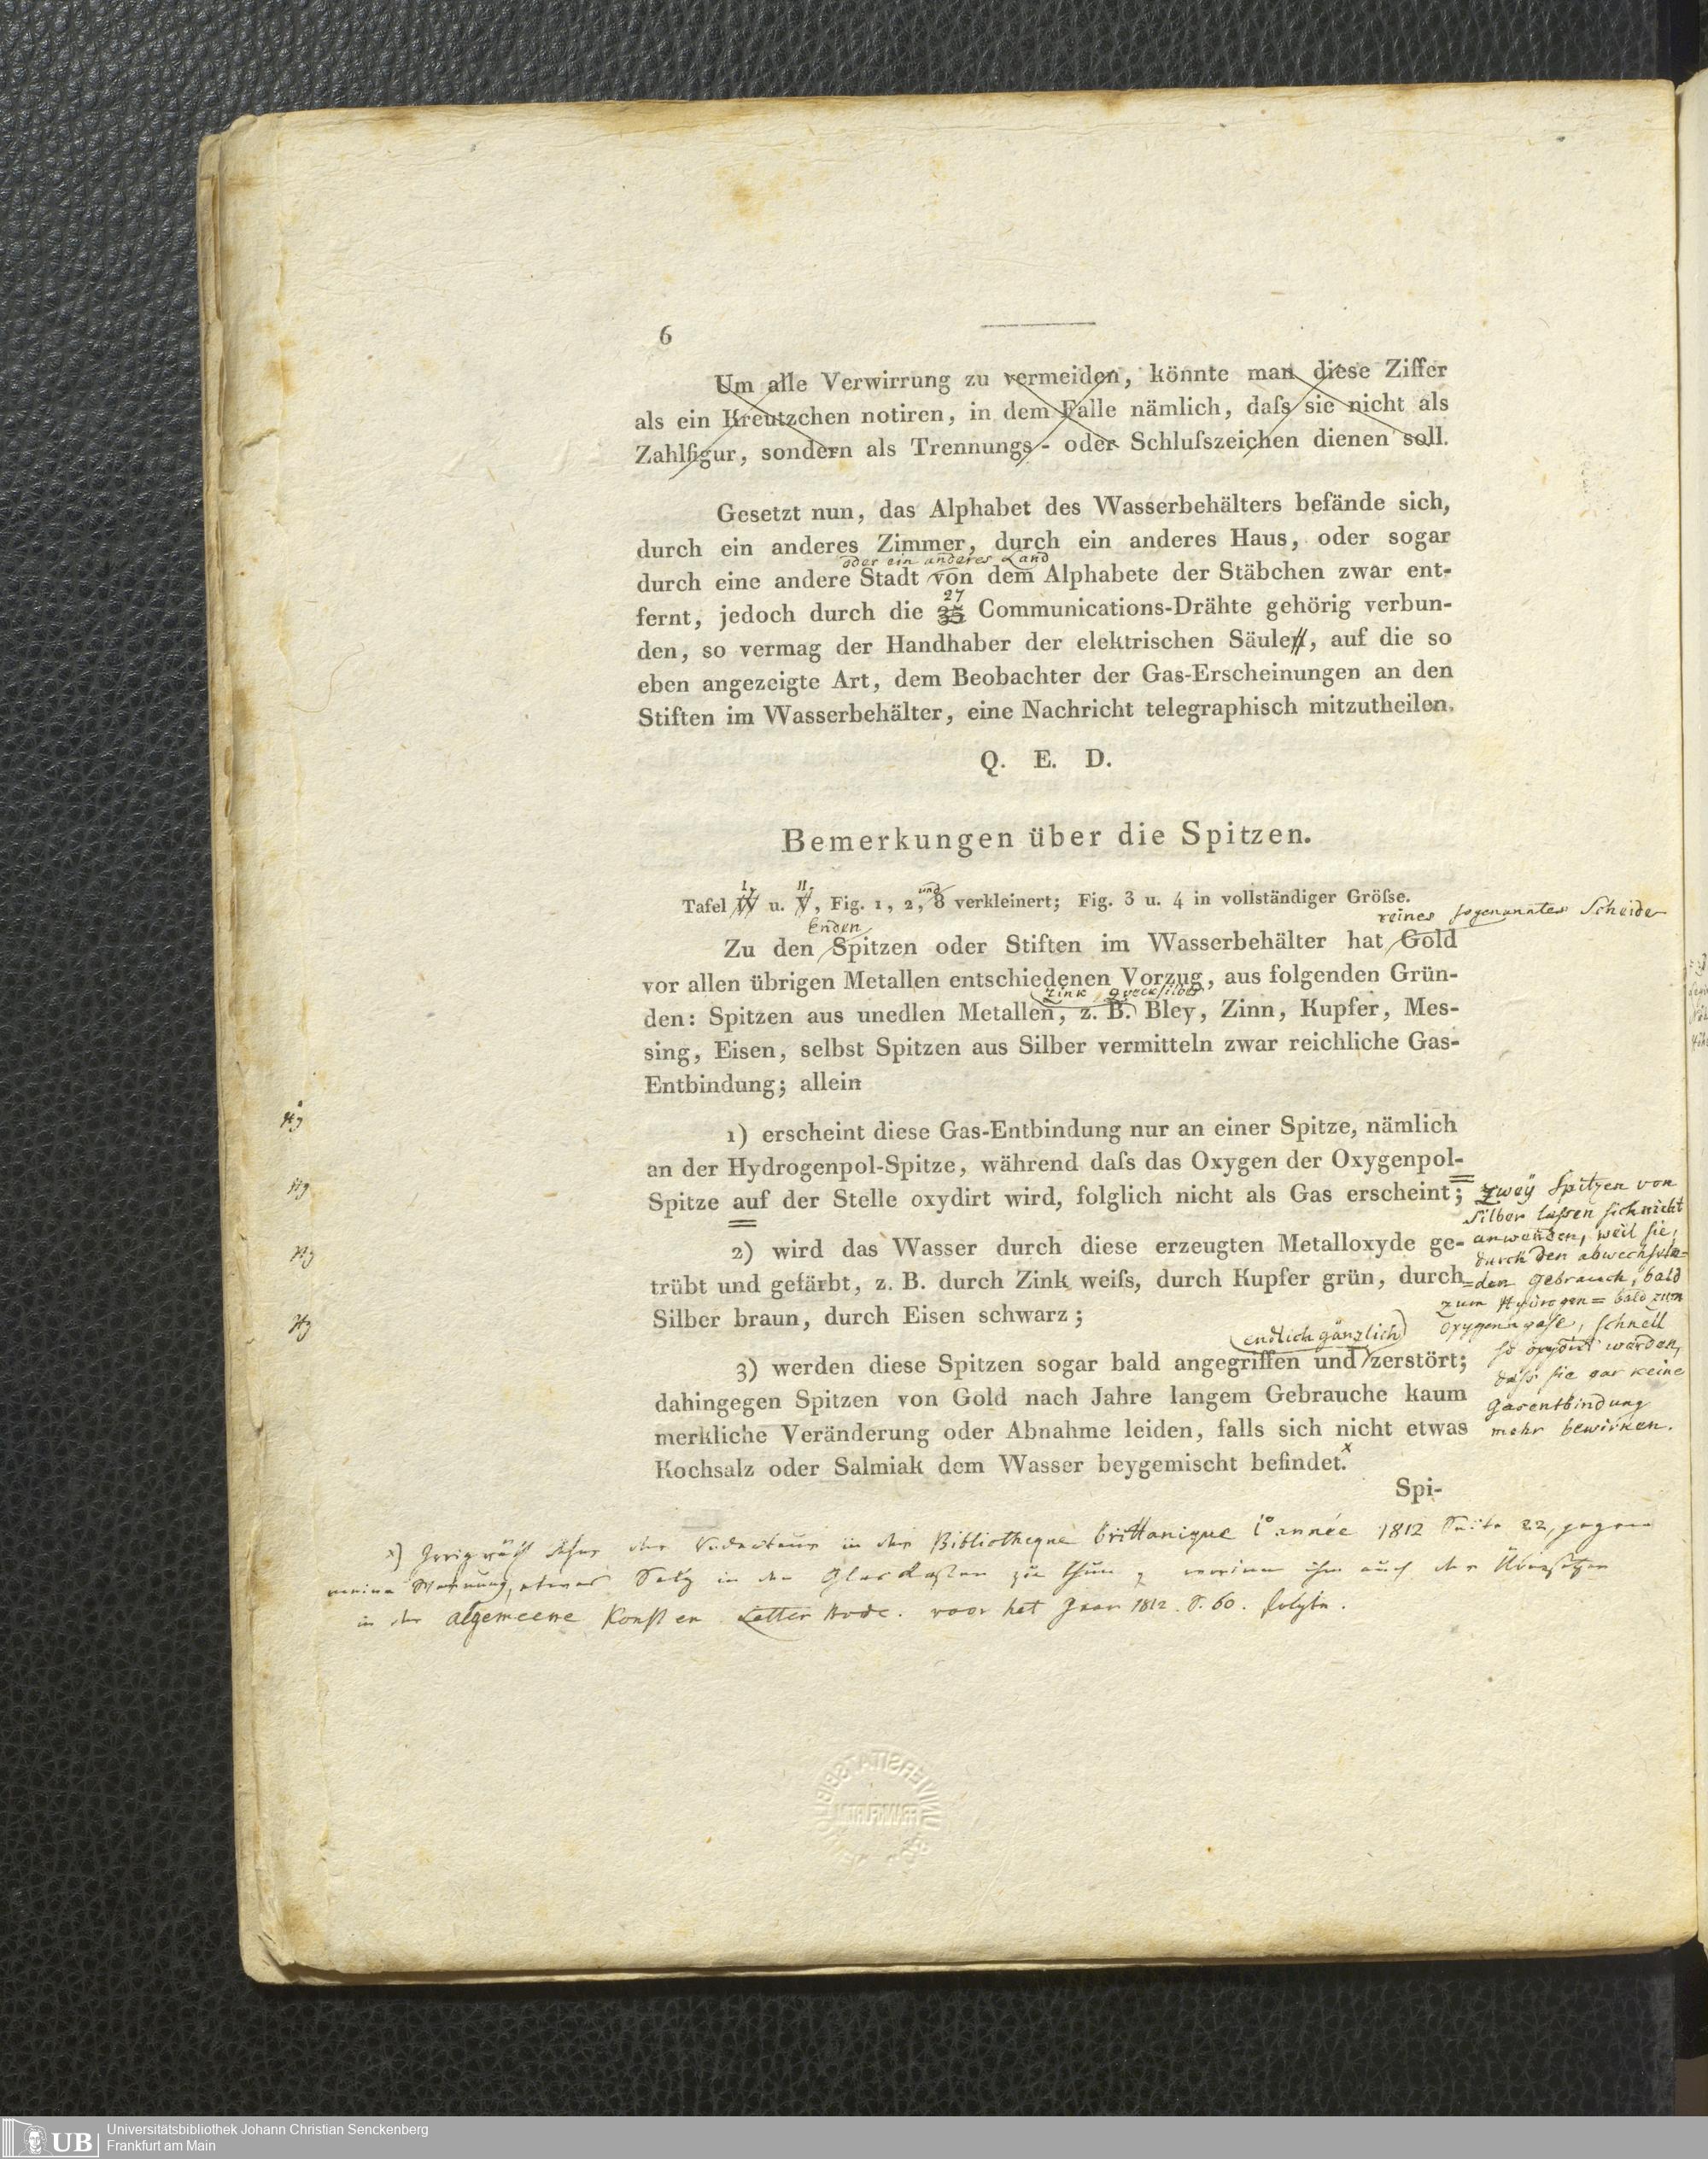 6
Um alle Verwirrung zu vermeiden, könnte man diese Ziffer
als ein Kreutzchen notiren, in dem Falle nämlich, daſs sie nicht als
Zahlfigur, sondern als Trennungs- oder Schluſszeichen dienen soll.
Gesetzt nun, das Alphabet des Wasserbehälters befände sich,
durch ein anderes Zimmer, durch ein anderes Haus, oder sogar
oder ein anderes Land
durch eine andere Stadt von dem Alphabete der Stäbchen zwar ent-
27
fernt, jedoch durch die 35 Communications-Drähte gehörig verbun-
den, so vermag der Handhaber der elektrischen Säulen, auf die so
eben angezeigte Art, dem Beobachter der Gas-Erscheinungen an den
Stiften im Wasserbehälter, eine Nachricht telegraphisch mitzutheilen.
Q. E. D.
Bemerkungen über die Spitzen.
I. II. und
Tafel IV u. V, Fig. 1, 2, 8 verkleinert; Fig. 3 u. 4 in vollständiger Gröſse.
Enden reines sogenanntes Scheide
Zu den Spitzen oder Stiften im Wasserbehälter hat Gold
vor allen übrigen Metallen entschiedenen Vorzug, aus folgenden Grün-
Zink, Quecksilber
den: Spitzen aus unedlen Metallen, z. B. Bley, Zinn, Kupfer, Mes-
sing, Eisen, selbst Spitzen aus Silber vermitteln zwar reichliche Gas-
Entbindung; allein
1) erscheint diese Gas-Entbindung nur an einer Spitze, nämlich
an der Hydrogenpol-Spitze, während daſs das Oxygen der Oxygenpol-
Spitze auf der Stelle oxydirt wird, folglich nicht als Gas erscheint;
2) wird das Wasser durch diese erzeugten Metalloxyde ge-
trübt und gefärbt, z. B. durch Zink weiſs, durch Kupfer grün, durch
Silber braun, durch Eisen schwarz;
endlich gänzlich
3) werden diese Spitzen sogar bald angegriffen und zerstört;
dahingegen Spitzen von Gold nach Jahre langem Gebrauche kaum
merkliche Veränderung oder Abnahme leiden, falls sich nicht etwas
Kochsalz oder Salmiak dem Wasser beygemischt befindet. x
Spi-
Zwey Spitzen von
Silber lassen sich nicht
anwenden, weil sie,
durch den abwechseln=
=den Gebrauch, bald
zum Hydrogen= bald zum
Oxygengase, schnell
so oxydirt werden,
daſs sie gar keine
Gasentbindung
mehr bewirken.
x) der Redacteur in der Bibliotheque brittanique 1812 Seite 22, gegen
meine Meinung, etwas Salz in den Glaskasten zu thun, ihm auch der Übersetzer
in der algemeene Konst en Letter Bode. voor het Jaar 1812. S. 60. folgte.
UNIVERSITÄTSBIBL
FRANKFURT/M
UB
Universitätsbibliothek Johann Christian Senckenberg
Frankfurt am Main